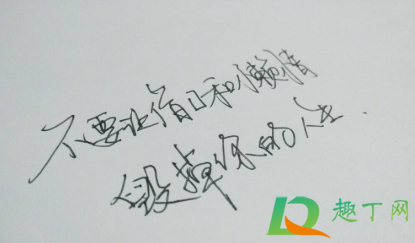 不要让借口和懒惰
毁掉你的人生.
趣丁网